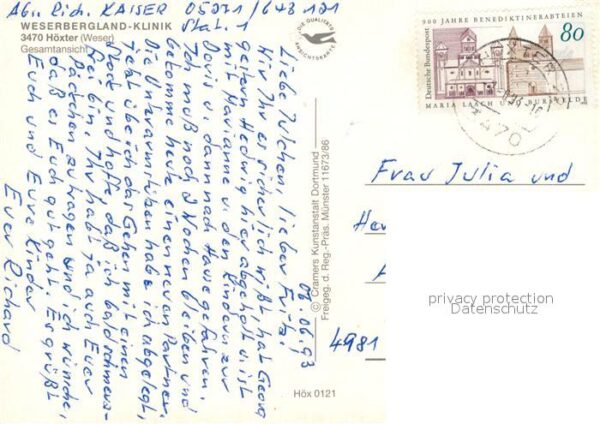 Abs. Rich. KAISER 05271/643 121
Stat. 1
WESERBERGLAND-KLINIK
3470 Höxter (Weser)
Gesamtansicht
DIE QUALITÄTS
ANSICHTSKARTE
06.06.93
Liebe Julchen, lieber Fritz!
Wie Ihr es sicherlich wißt, hat Georg
gestern Hedwig hier abgeholt u. ist
mit Marianne u. den Kindern zur
Doris u. dann nach Hause gefahren.
Ich muß noch 2 Wochen bleiben und
bekomme heute einen neuen Partner.
Die Unterarmstützen habe ich abgelegt,
jetzt übe ich das Gehen mit einem
Stock und hoffe, daß ich bald schmerz-
frei bin. Ihr habt ja auch Euer
Päckchen zu tragen und ich wünsche,
daß es Euch gut geht. Es grüßt
Euch und Eure Kinder
Euer Richard
© Cramers Kunstanstalt Dortmund
Freigeg. d. Reg.-Präs. Münster 11673/86
Höx 0121
900 JAHRE BENEDIKTINERABTEIEN
80
Deutsche Bundespost
MARIA LAACH UND BURSFELDE
3470
Frau Julia und
4981
privacy protection
Datenschutz